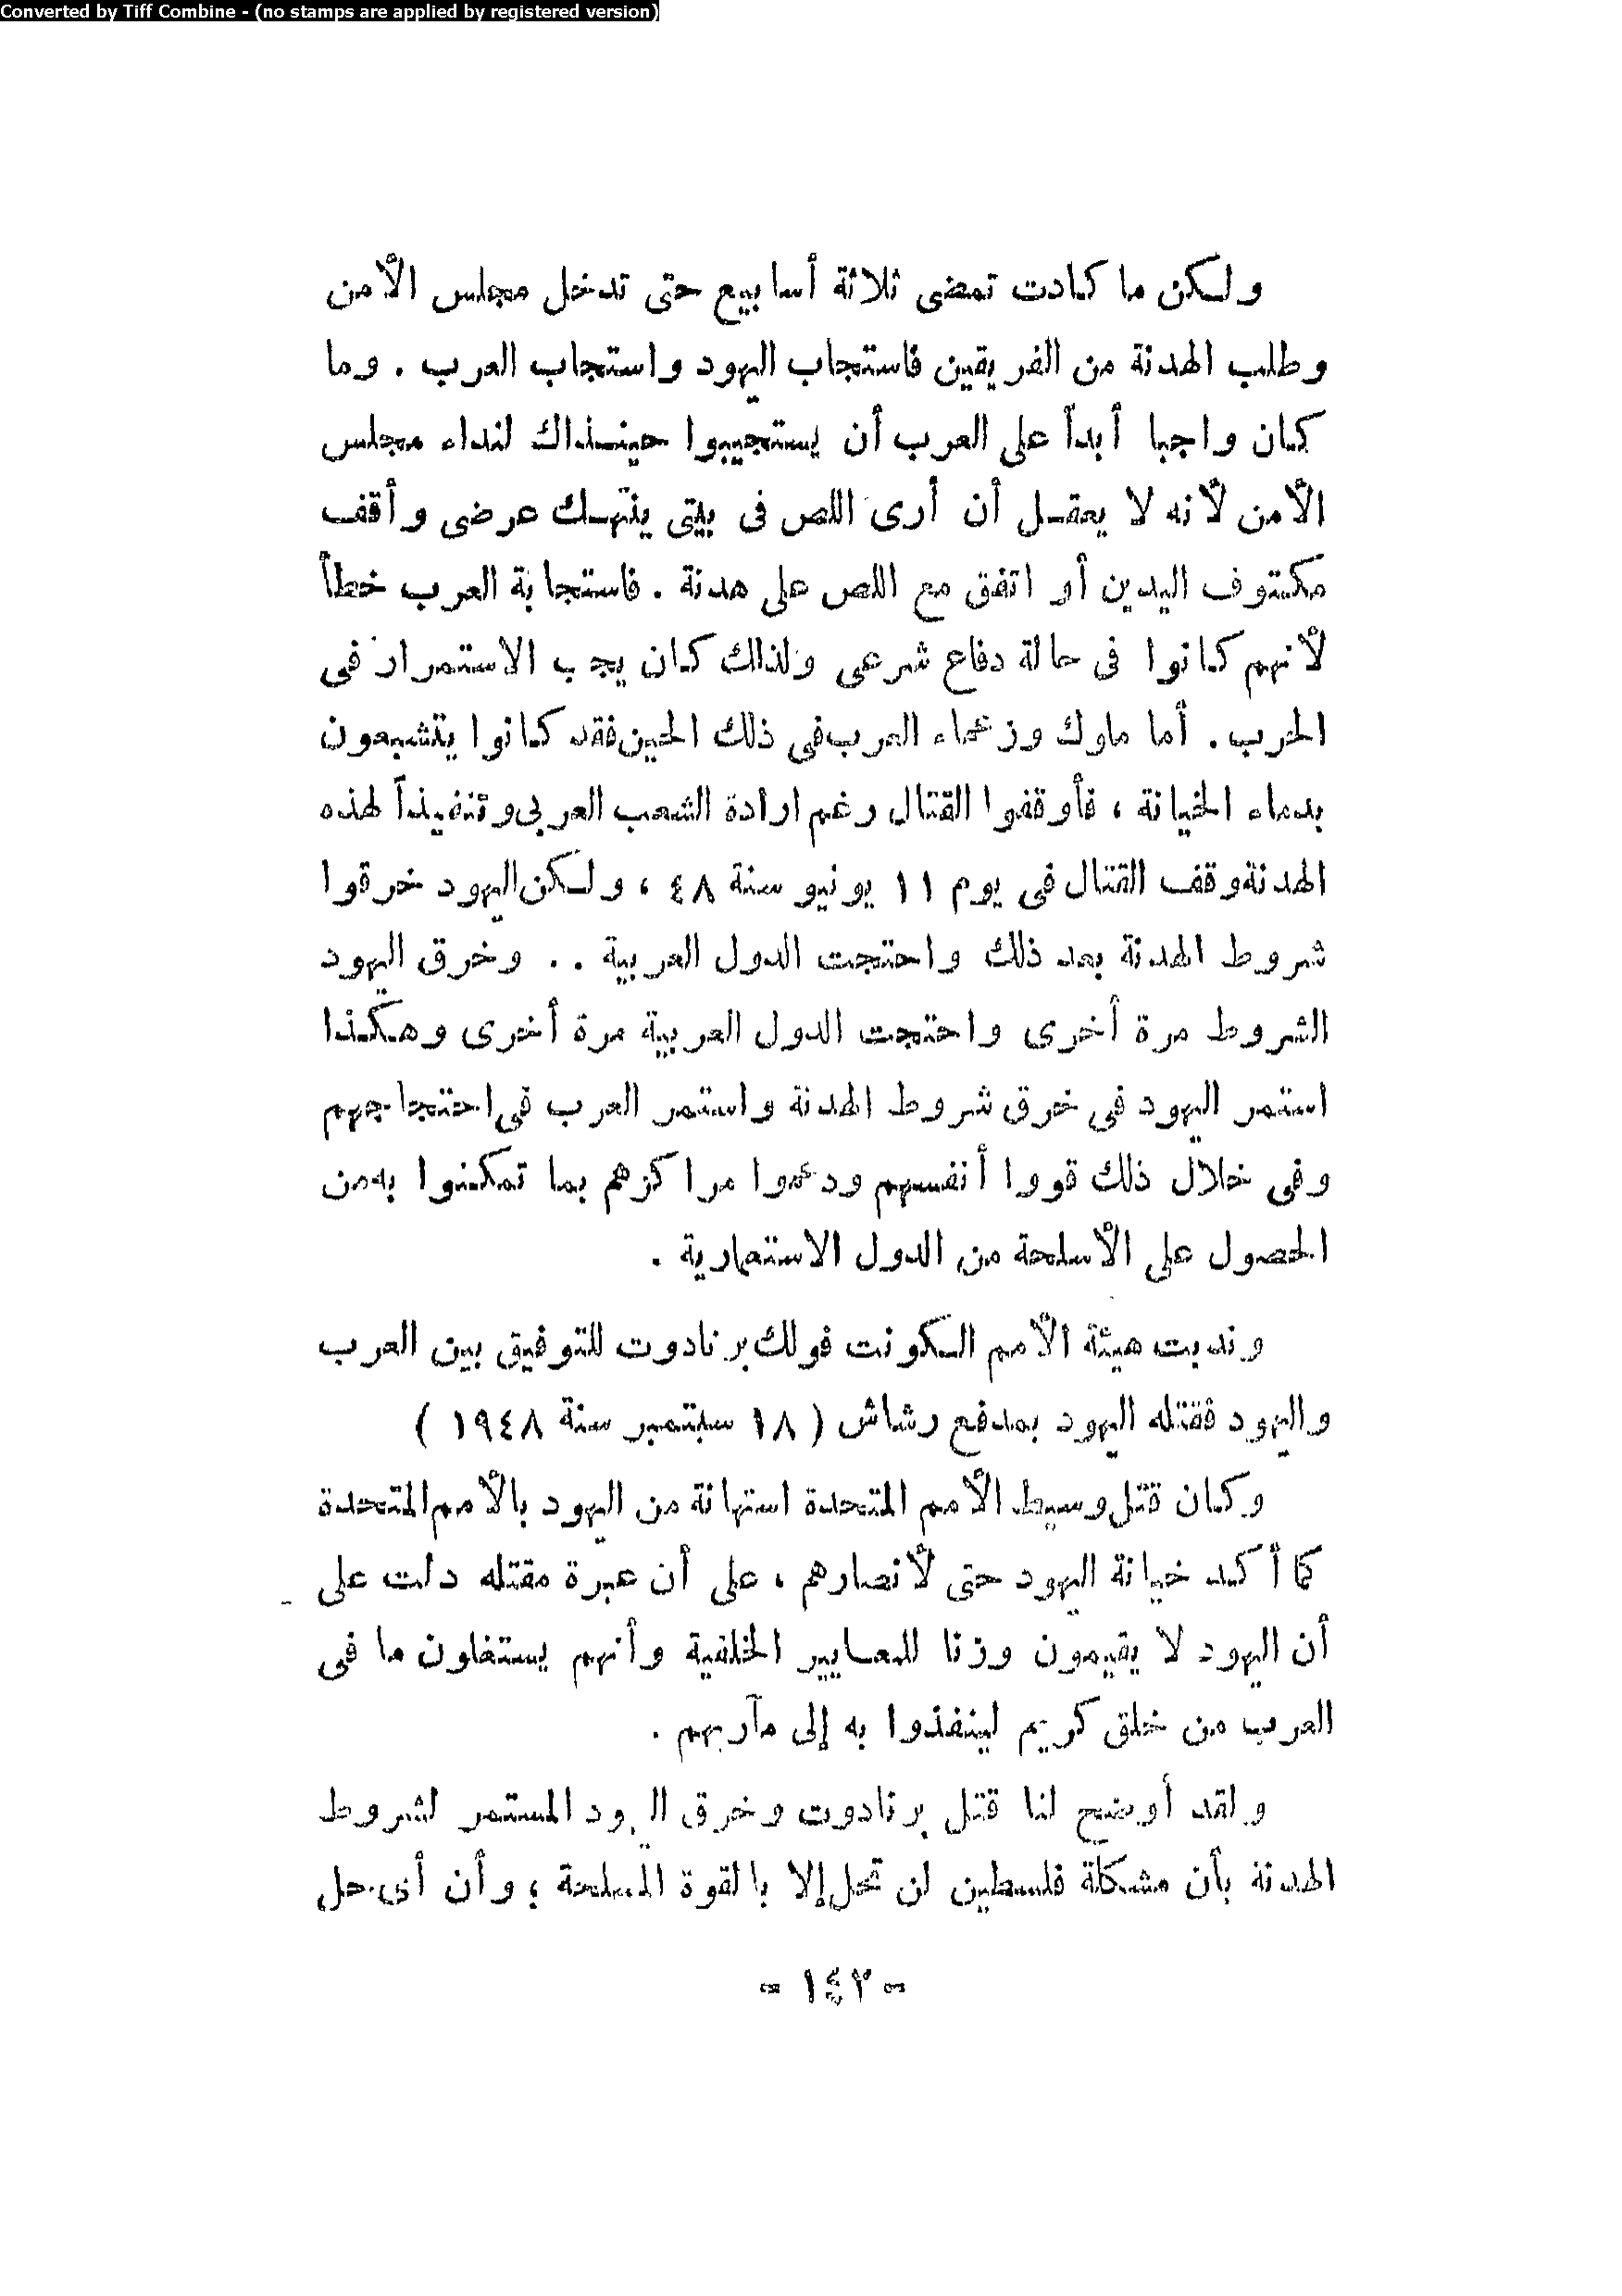 Converted by Tiff Combine - (no stamps are applied by registered version)
ولكن ما كادت تمضى ثلاثة أسابيع حتى تدخل مجلس الأمن
وطلب الهدنة من الفريقين فاستجاب اليهود واستجاب العرب . وما
كان واجبا أبداً على العرب أن يستجيبوا حينذاك لنداء مجلس
الأمن لأنه لا يعقل أن أرى اللص فى بيتى ينتهك عرضى وأقف
مكتوف اليدين أو اتفق مع اللص على هدنة . فاستجابة العرب خطأ
لأنهم كانوا فى حالة دفاع شرعى ولذلك كان يجب الاستمرار فى
الحرب . أما ملوك وزعماء العرب فى ذلك الحين فقد كانوا يتشبعون
بدماء الخيانة ، فأوقفوا القتال رغم ارادة الشعب العربى وتنفيذاً لهذه
الهدنة وقف القتال فى يوم ١١ يونيو سنة ٤٨ ، ولكن اليهود خرقوا
شروط الهدنة بعد ذلك واحتجت الدول العربية . . وخرق اليهود
الشروط مرة أخرى واحتجت الدول العربية مرة أخرى وهكذا
استمر اليهود فى خرق شروط الهدنة واستمر العرب فى احتجاجهم
وفى خلال ذلك قووا أنفسهم ودعموا مراكزهم بما تمكنوا به من
الحصول على الأسلحة من الدول الاستعمارية .
وندبت هيئة الأمم الكونت فولك برنادوت للتوفيق بين العرب
واليهود فقتله اليهود بمدفع رشاش ( ١٨ سبتمبر سنة ١٩٤٨ )
وكان قتل وسيط الأمم المتحدة استهانة من اليهود بالأمم المتحدة
كما أكد خيانة اليهود حتى لأنصارهم ، على أن عبرة مقتله دلت على
أن اليهود لا يقيمون وزنا للمعايير الخلقية وأنهم يستغلون ما فى
العرب من خلق كريم لينفذوا به إلى مآربهم .
ولقد أوضح لنا قتل برنادوت وخرق اليهود المستمر لشروط
الهدنة بأن مشكلة فلسطين لن تحل إلا بالقوة المسلحة ؛ وأن أى حل
- ١٤٢ -